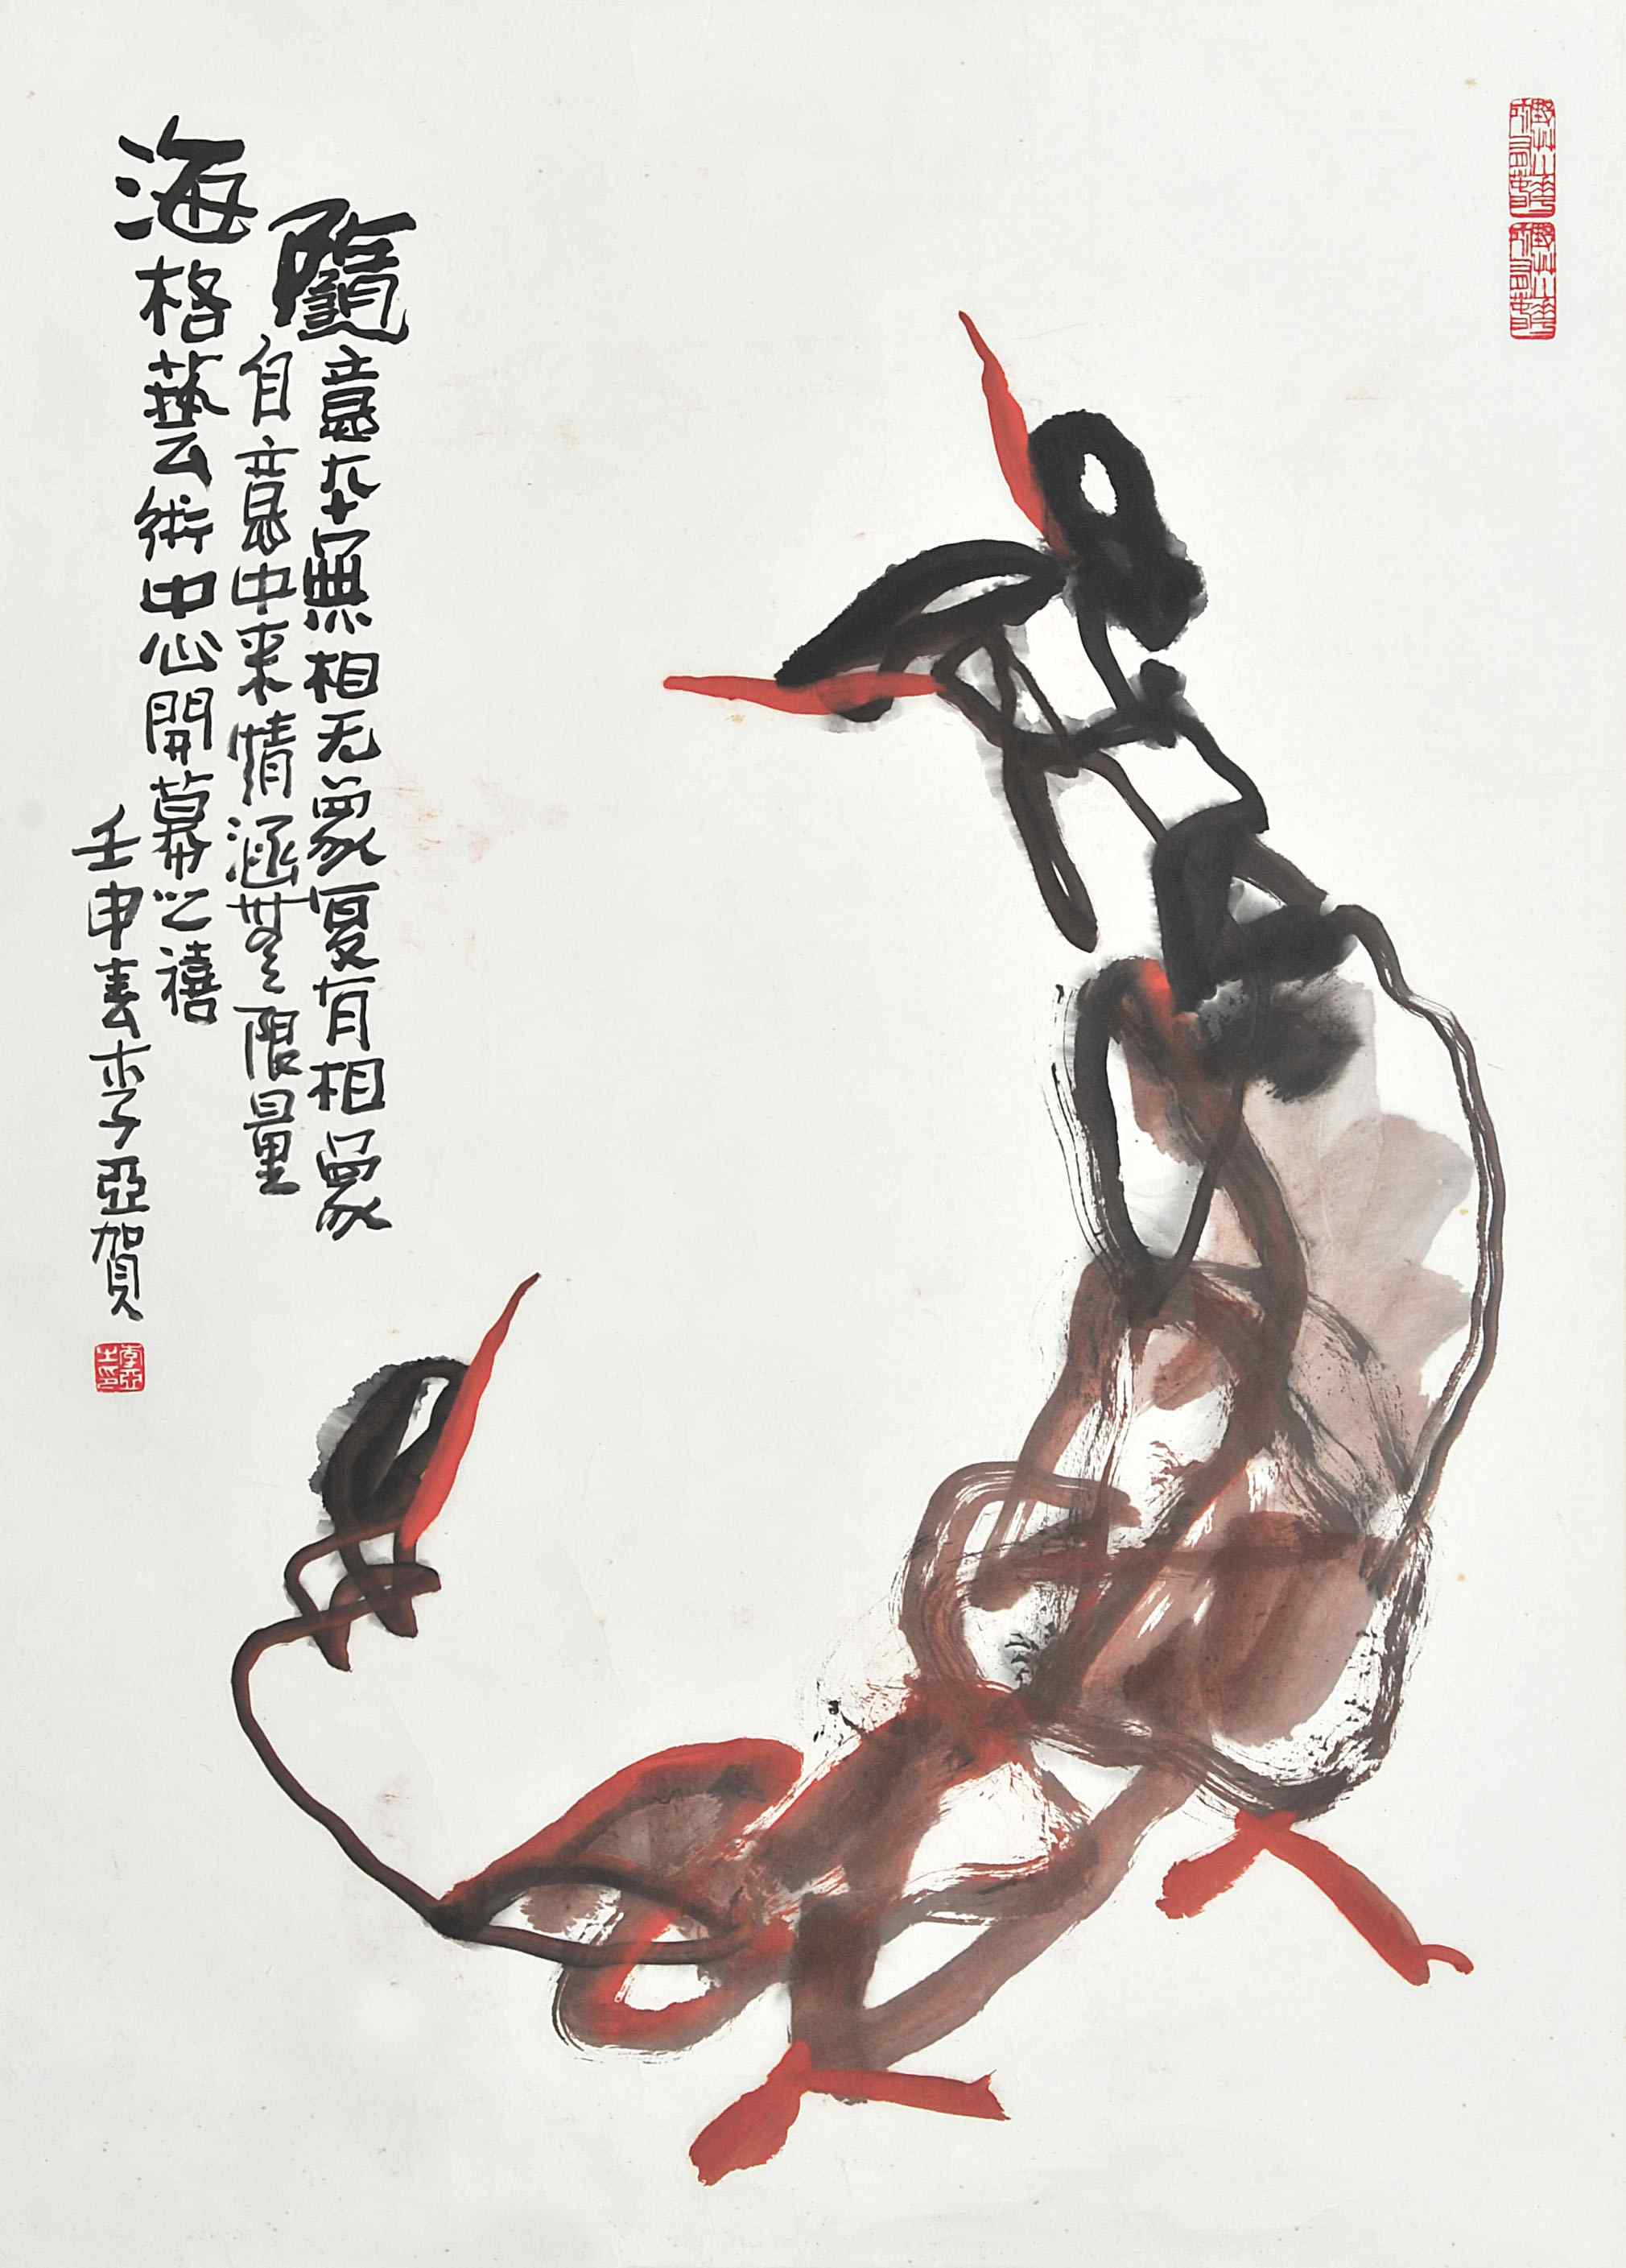 隨意本無相无象复有相象
自意中来情涵無限量
海格藝術中心開幕之禧
壬申春李亞賀
李亞
之印